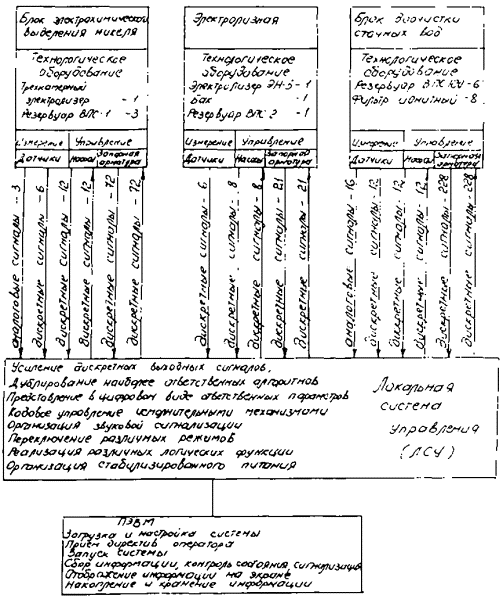 Блок электрохимического
выделения никеля
Технологическое
оборудование
Трехкамерный
электролизер - 1
Резервуар ВПС-1 - 3
Измерение Управление
Датчики Насосы Запорная арматура
аналоговые сигналы - 3
дискретные сигналы - 6
дискретные сигналы - 12
дискретные сигналы - 12
дискретные сигналы - 72
дискретные сигналы - 72
Электролизная
Технологическое
оборудование
Электролизер ЭН-5 - 1
Бак - 1
Резервуар ВПС 2 - 1
Измерение Управление
Датчики Насосы Запорная арматура
дискретные сигналы - 6
дискретные сигналы - 8
дискретные сигналы - 8
дискретные сигналы - 21
дискретные сигналы - 21
Блок доочистки
сточных вод
Технологическое
оборудование
Резервуар ВПС - 6
Фильтр ионитный - 8
Измерение Управление
Датчики Насосы Запорная арматура
аналоговых сигналы - 16
дискретные сигналы - 12
дискретные сигналы - 12
дискретные сигналы - 12
дискретные сигналы - 228
дискретные сигналы - 228
Усиление дискретных выходных сигналов,
Дублирование наиболее ответственных алгоритмов
Представление в цифровом виде ответственных параметров
Кодовое управление исполнительными механизмами
Организация звуковой сигнализации
Переключение различных режимов
Реализация различных логических функции
Организация стабилизированного питания
Локальная
система
управления
(ЛСУ)
ПЭВМ
Загрузка и настройка системы
Прием директив оператора
Запуск системы
Сбор информации, контроль состояния, сигнализация
Отображение информации на экране
Накопление и хранение информации